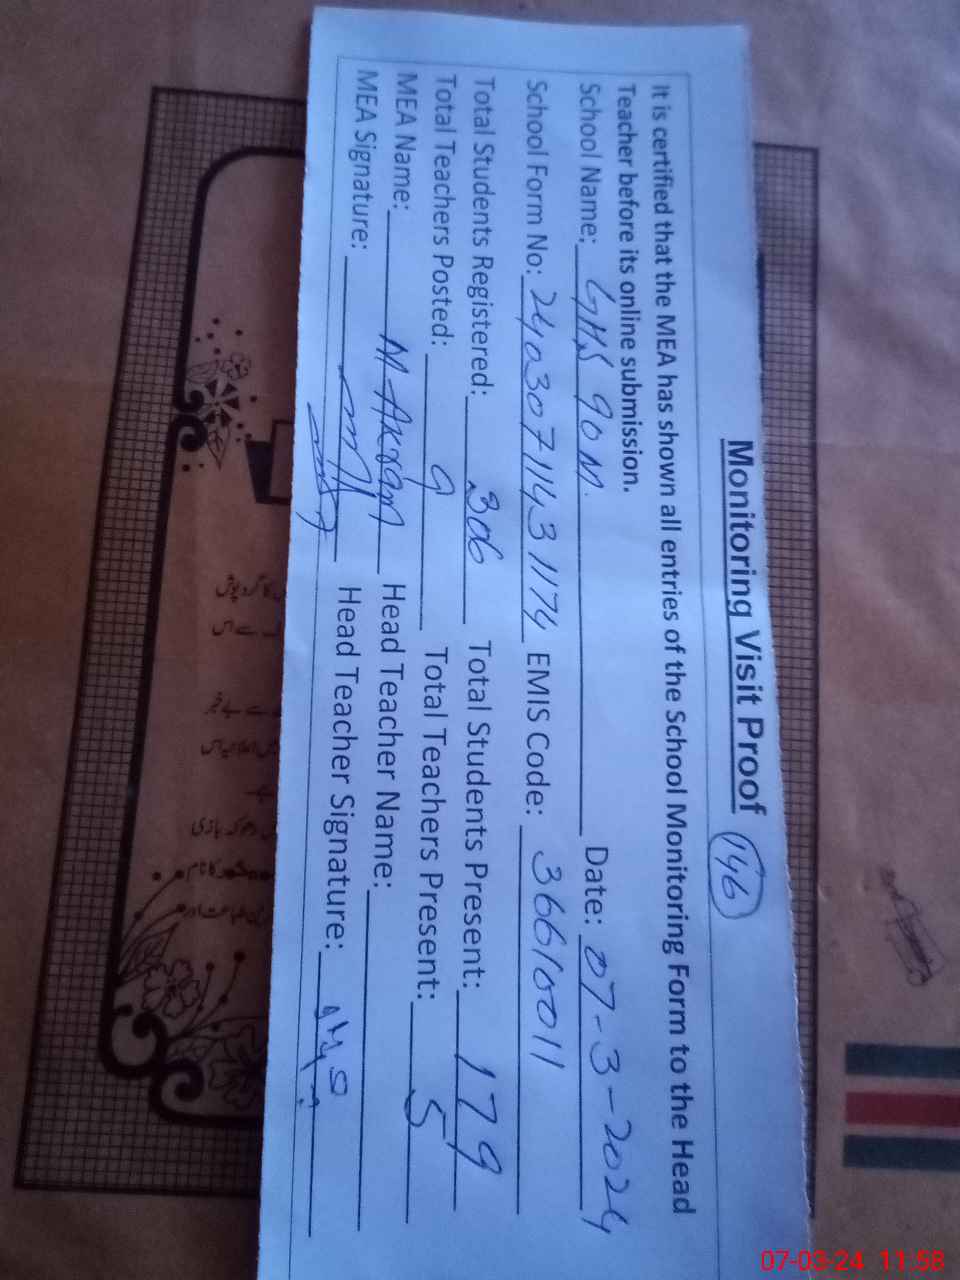 Monitoring Visit Proof
146
It is certified that the MEA has shown all entries of the School Monitoring Form to the Head
Teacher before its online submission.
School Name: GHS 90 M. Date: 07-3-2024
School Form No: 24030711431174 EMIS Code: 36610011
Total Students Registered: 306 Total Students Present: 179
Total Teachers Posted: 9 Total Teachers Present: 5
MEA Name: M Akram Head Teacher Name:
MEA Signature: Head Teacher Signature:
07-03-24 11:58